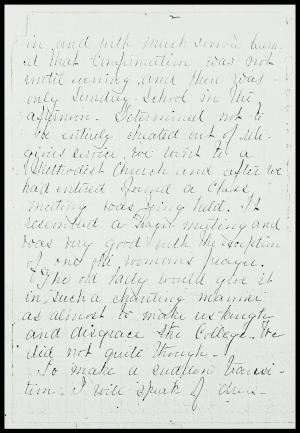 2
in and with much sorrow learn-
ed that Confirmation was not
until evening and there was
only Sunday-School in the
afternoon. Determined not to
be entirely cheated out of reli-
gious service, we went to a
Methodist Church and after we
had entered found a Class
meeting was being held. It
resembled a Prayer meeting and
was very good with the exception
of one old woman's prayer.
The old lady would give it
in such a chanting manner
as almost to make us laugh
and disgrace the College. We
did not quite though.
To make a sudden transi-
tion. I will speak of dress-